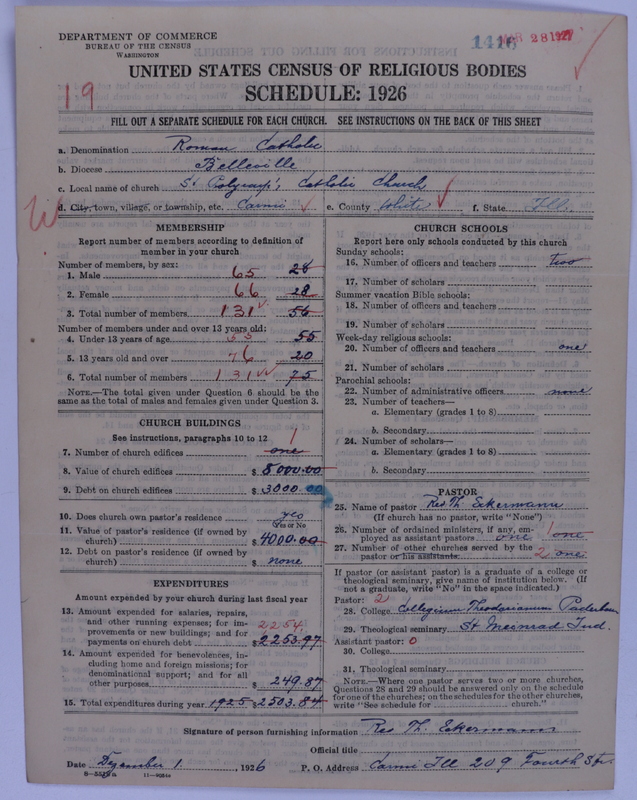 DEPARTMENT OF COMMERCE
BUREAU OF THE CENSUS
WASHINGTON
1416 MAR 28 1927
UNITED STATES CENSUS OF RELIGIOUS BODIES
SCHEDULE: 1926
19
FILL OUT A SEPARATE SCHEDULE FOR EACH CHURCH. SEE INSTRUCTIONS ON THE BACK OF THIS SHEET
a. Denomination Roman Catholic
b. Diocese Belleville
c. Local name of church St Polycarp's Catholic Church
e. City, town, village, or township, etc. Carmi e. County White f. State Ill.
MEMBERSHIP
Report number of members according to definition of member in your church
Number of members, by sex:
1. Male 65 28
2. Female 66 28
3. Total number of members 131 56
Number of members under and over 13 years old:
4. Under 13 years of age 55 55
5. 13 years old and over 76 20
6. Total number of members 131 75
NOTE.—The total given under Question 6 should be the same as the total of males and females given under Question 3.
CHURCH BUILDINGS
See instructions, paragraphs 10 to 12
7. Number of church edifices one 1
8. Value of church edifices $ 8000.00
9. Debt on church edifices $ 3000.00
10. Does church own pastor's residence yes
Yes or No
11. Value of pastor's residence (if owned by church) $ 4000.00
12. Debt on pastor's residence (if owned by church) $ none
EXPENDITURES
Amount expended by your church during last fiscal year
13. Amount expended for salaries, repairs, and other running expenses; for improvements or new buildings; and for payments on church debt 2254 $ 2253.97
14. Amount expended for benevolences, including home and foreign missions; for denominational support; and for all other purposes $ 249.87
15. Total expenditures during year 1925 $ 2503.84
CHURCH SCHOOLS
Report here only schools conducted by this church
Sunday schools:
16. Number of officers and teachers two
17. Number of scholars
Summer vacation Bible schools:
18. Number of officers and teachers
19. Number of scholars
Week-day religious schools:
20. Number of officers and teachers one
21. Number of scholars
Parochial schools:
22. Number of administrative officers none
23. Number of teachers—
a. Elementary (grades 1 to 8)
b. Secondary
24. Number of scholars—
a. Elementary (grades 1 to 8)
b. Secondary
PASTOR
25. Name of pastor Rev Th. Eckermann
(If church has no pastor, write "None")
26. Number of ordained ministers, if any, employed as assistant pastors one 1 one
27. Number of other churches served by the pastor or his assistants 2 one
If pastor (or assistant pastor) is a graduate of a college or theological seminary, give name of institution below. (If not a graduate, write "No" in the space indicated.)
Pastor: 2
28. College Collegium Theodorianum Paderborn
29. Theological seminary St Meinrad Ind.
Assistant pastor: 0
30. College
31. Theological seminary
NOTE.—Where one pastor serves two or more churches, Questions 28 and 29 should be answered only on the schedule for one of the churches; on the schedules for the other churches, write "See schedule for church."
Signature of person furnishing information Rev Th. Eckermann
Official title
Date December 1, 1926 P. O. Address Carmi Ill 209 Fourth Str.